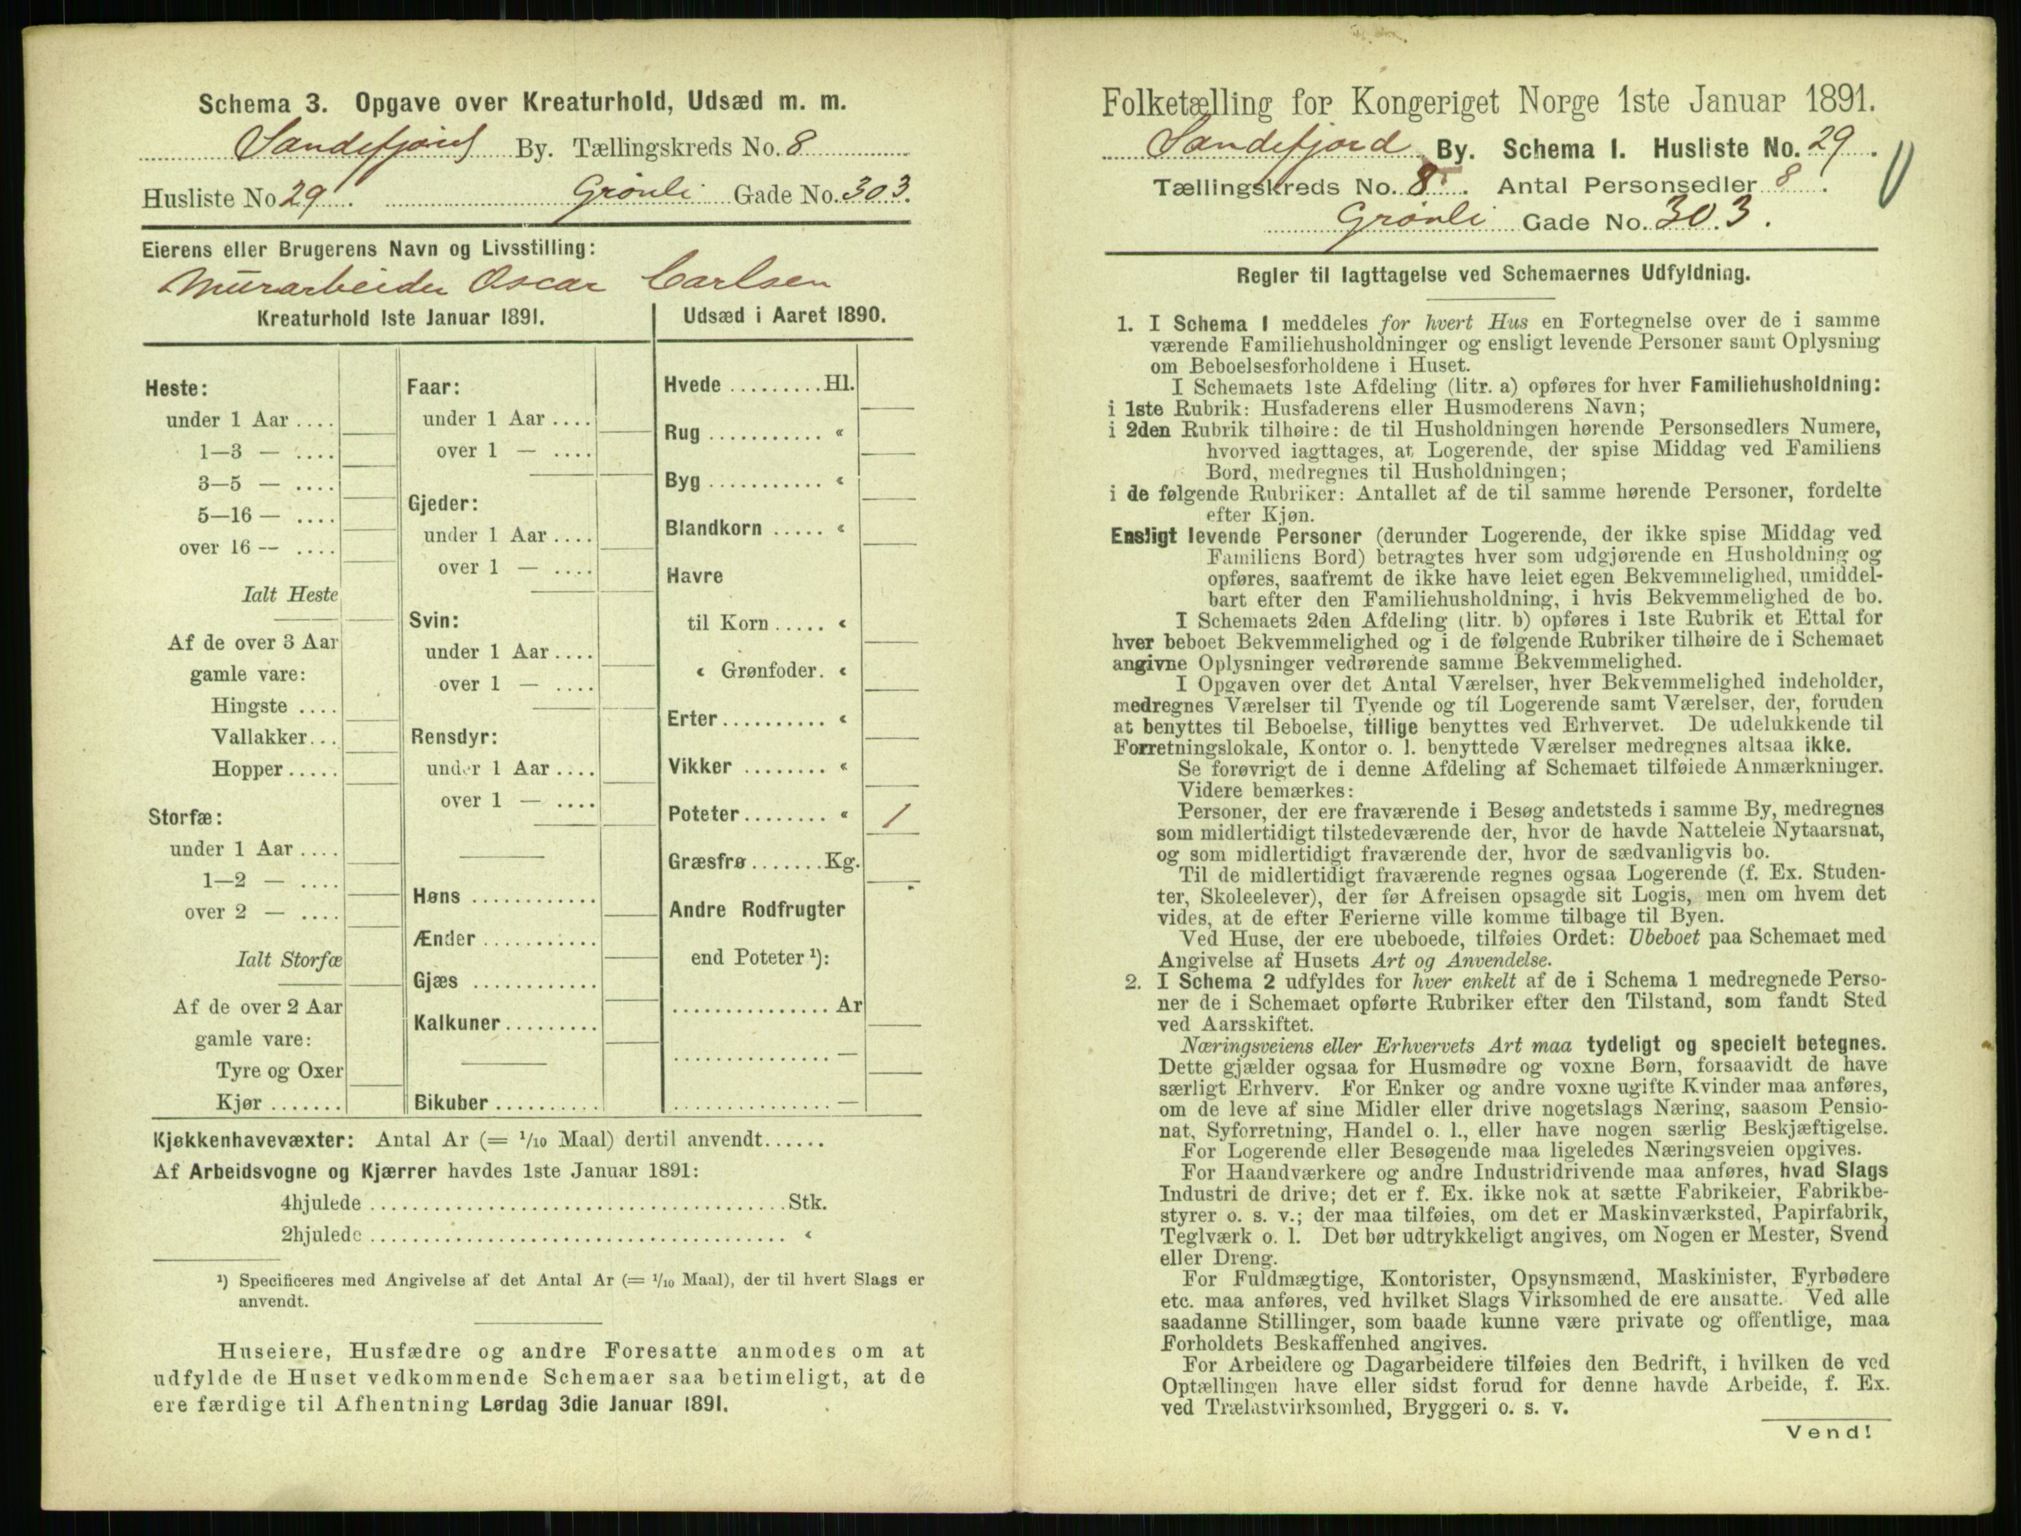 Schema 3. Opgave over Kreaturhold, Udsæd m. m.
Sandefjord By. Tællingskreds No. 8
Husliste No 29. Grønli Gade No. 303.
Eierens eller Brugerens Navn og Livsstilling:
Murarbeider Oscar Carlsen
Kreaturhold 1ste Januar 1891.
Heste:
under 1 Aar ....
1—3 — ....
3—5 — ....
5—16 — ....
over 16 — ....
Ialt Heste
Af de over 3 Aar
gamle vare:
Hingste ....
Vallakker...
Hopper.....
Storfæ:
under 1 Aar ....
1—2 — ....
over 2 — ....
Ialt Storfæ
Af de over 2 Aar
gamle vare:
Tyre og Oxer
Kjør.......
Faar:
under 1 Aar ....
over 1 — ....
Gjeder:
under 1 Aar ....
over 1 — ....
Svin:
under 1 Aar ....
over 1 — ....
Rensdyr:
under 1 Aar ....
over 1 — ....
Høns ............
Ænder...........
Gjæs ............
Kalkuner.........
Bikuber..........
Udsæd i Aaret 1890.
Hvede .........Hl.
Rug ........... «
Byg ........... «
Blandkorn ..... «
Havre
til Korn ..... «
« Grønfoder. «
Erter.......... «
Vikker ........ «
Poteter........ « 1
Græsfrø.......Kg.
Andre Rodfrugter
end Poteter ¹):
............... Ar
............... —
............... —
Kjøkkenhavevæxter: Antal Ar (= 1/10 Maal) dertil anvendt......
Af Arbeidsvogne og Kjærrer havdes 1ste Januar 1891:
4hjulede ......................................Stk.
2hjulede ...................................... «
¹) Specificeres med Angivelse af det Antal Ar (= 1/10 Maal), der til hvert Slags er
anvendt.
Huseiere, Husfædre og andre Foresatte anmodes om at
udfylde de Huset vedkommende Schemaer saa betimeligt, at de
ere færdige til Afhentning Lørdag 3die Januar 1891.
Folketælling for Kongeriget Norge 1ste Januar 1891.
Sandefjord By. Schema 1. Husliste No. 29.
Tællingskreds No. 8. Antal Personsedler 8.
Grønli Gade No. 303.
Regler til Iagttagelse ved Schemaernes Udfyldning.
1. I Schema 1 meddeles for hvert Hus en Fortegnelse over de i samme
værende Familiehusholdninger og ensligt levende Personer samt Oplysning
om Beboelsesforholdene i Huset.
I Schemaets 1ste Afdeling (litr. a) opføres for hver Familiehusholdning:
i 1ste Rubrik: Husfaderens eller Husmoderens Navn;
i 2den Rubrik tilhøire: de til Husholdningen hørende Personsedlers Numere,
hvorved iagttages, at Logerende, der spise Middag ved Familiens
Bord, medregnes til Husholdningen;
i de følgende Rubriker: Antallet af de til samme hørende Personer, fordelte
efter Kjøn.
Ensligt levende Personer (derunder Logerende, der ikke spise Middag ved
Familiens Bord) betragtes hver som udgjørende en Husholdning og
opføres, saafremt de ikke have leiet egen Bekvemmelighed, umiddel-
bart efter den Familiehusholdning, i hvis Bekvemmelighed de bo.
I Schemaets 2den Afdeling (litr. b) opføres i 1ste Rubrik et Ettal for
hver beboet Bekvemmelighed og i de følgende Rubriker tilhøire de i Schemaet
angivne Oplysninger vedrørende samme Bekvemmelighed.
I Opgaven over det Antal Værelser, hver Bekvemmelighed indeholder,
medregnes Værelser til Tyende og til Logerende samt Værelser, der, foruden
at benyttes til Beboelse, tillige benyttes ved Erhvervet. De udelukkende til
Forretningslokale, Kontor o. l. benyttede Værelser medregnes altsaa ikke.
Se forøvrigt de i denne Afdeling af Schemaet tilføiede Anmærkninger.
Videre bemærkes:
Personer, der ere fraværende i Besøg andetsteds i samme By, medregnes
som midlertidigt tilstedeværende der, hvor de havde Natteleie Nytaarsnat,
og som midlertidigt fraværende der, hvor de sædvanligvis bo.
Til de midlertidigt fraværende regnes ogsaa Logerende (f. Ex. Studen-
ter, Skoleelever), der før Afreisen opsagde sit Logis, men om hvem det
vides, at de efter Ferierne ville komme tilbage til Byen.
Ved Huse, der ere ubeboede, tilføies Ordet: Ubeboet paa Schemaet med
Angivelse af Husets Art og Anvendelse.
2. I Schema 2 udfyldes for hver enkelt af de i Schema 1 medregnede Perso-
ner de i Schemaet opførte Rubriker efter den Tilstand, som fandt Sted
ved Aarsskiftet.
Næringsveiens eller Erhvervets Art maa tydeligt og specielt betegnes.
Dette gjælder ogsaa for Husmødre og voxne Børn, forsaavidt de have
særligt Erhverv. For Enker og andre voxne ugifte Kvinder maa anføres,
om de leve af sine Midler eller drive nogetslags Næring, saasom Pensio-
nat, Syforretning, Handel o. l., eller have nogen særlig Beskjæftigelse.
For Logerende eller Besøgende maa ligeledes Næringsveien opgives.
For Haandværkere og andre Industridrivende maa anføres, hvad Slags
Industri de drive; det er f. Ex. ikke nok at sætte Fabrikeier, Fabrikbe-
styrer o. s. v.; der maa tilføies, om det er Maskinværksted, Papirfabrik,
Teglværk o. l. Det bør udtrykkeligt angives, om Nogen er Mester, Svend
eller Dreng.
For Fuldmægtige, Kontorister, Opsynsmænd, Maskinister, Fyrbødere
etc. maa anføres, ved hvilket Slags Virksomhed de ere ansatte. Ved alle
saadanne Stillinger, som baade kunne være private og offentlige, maa
Forholdets Beskaffenhed angives.
For Arbeidere og Dagarbeidere tilføies den Bedrift, i hvilken de ved
Optællingen have eller sidst forud for denne havde Arbeide, f. Ex.
ved Trælastvirksomhed, Bryggeri o. s. v.
Vend!